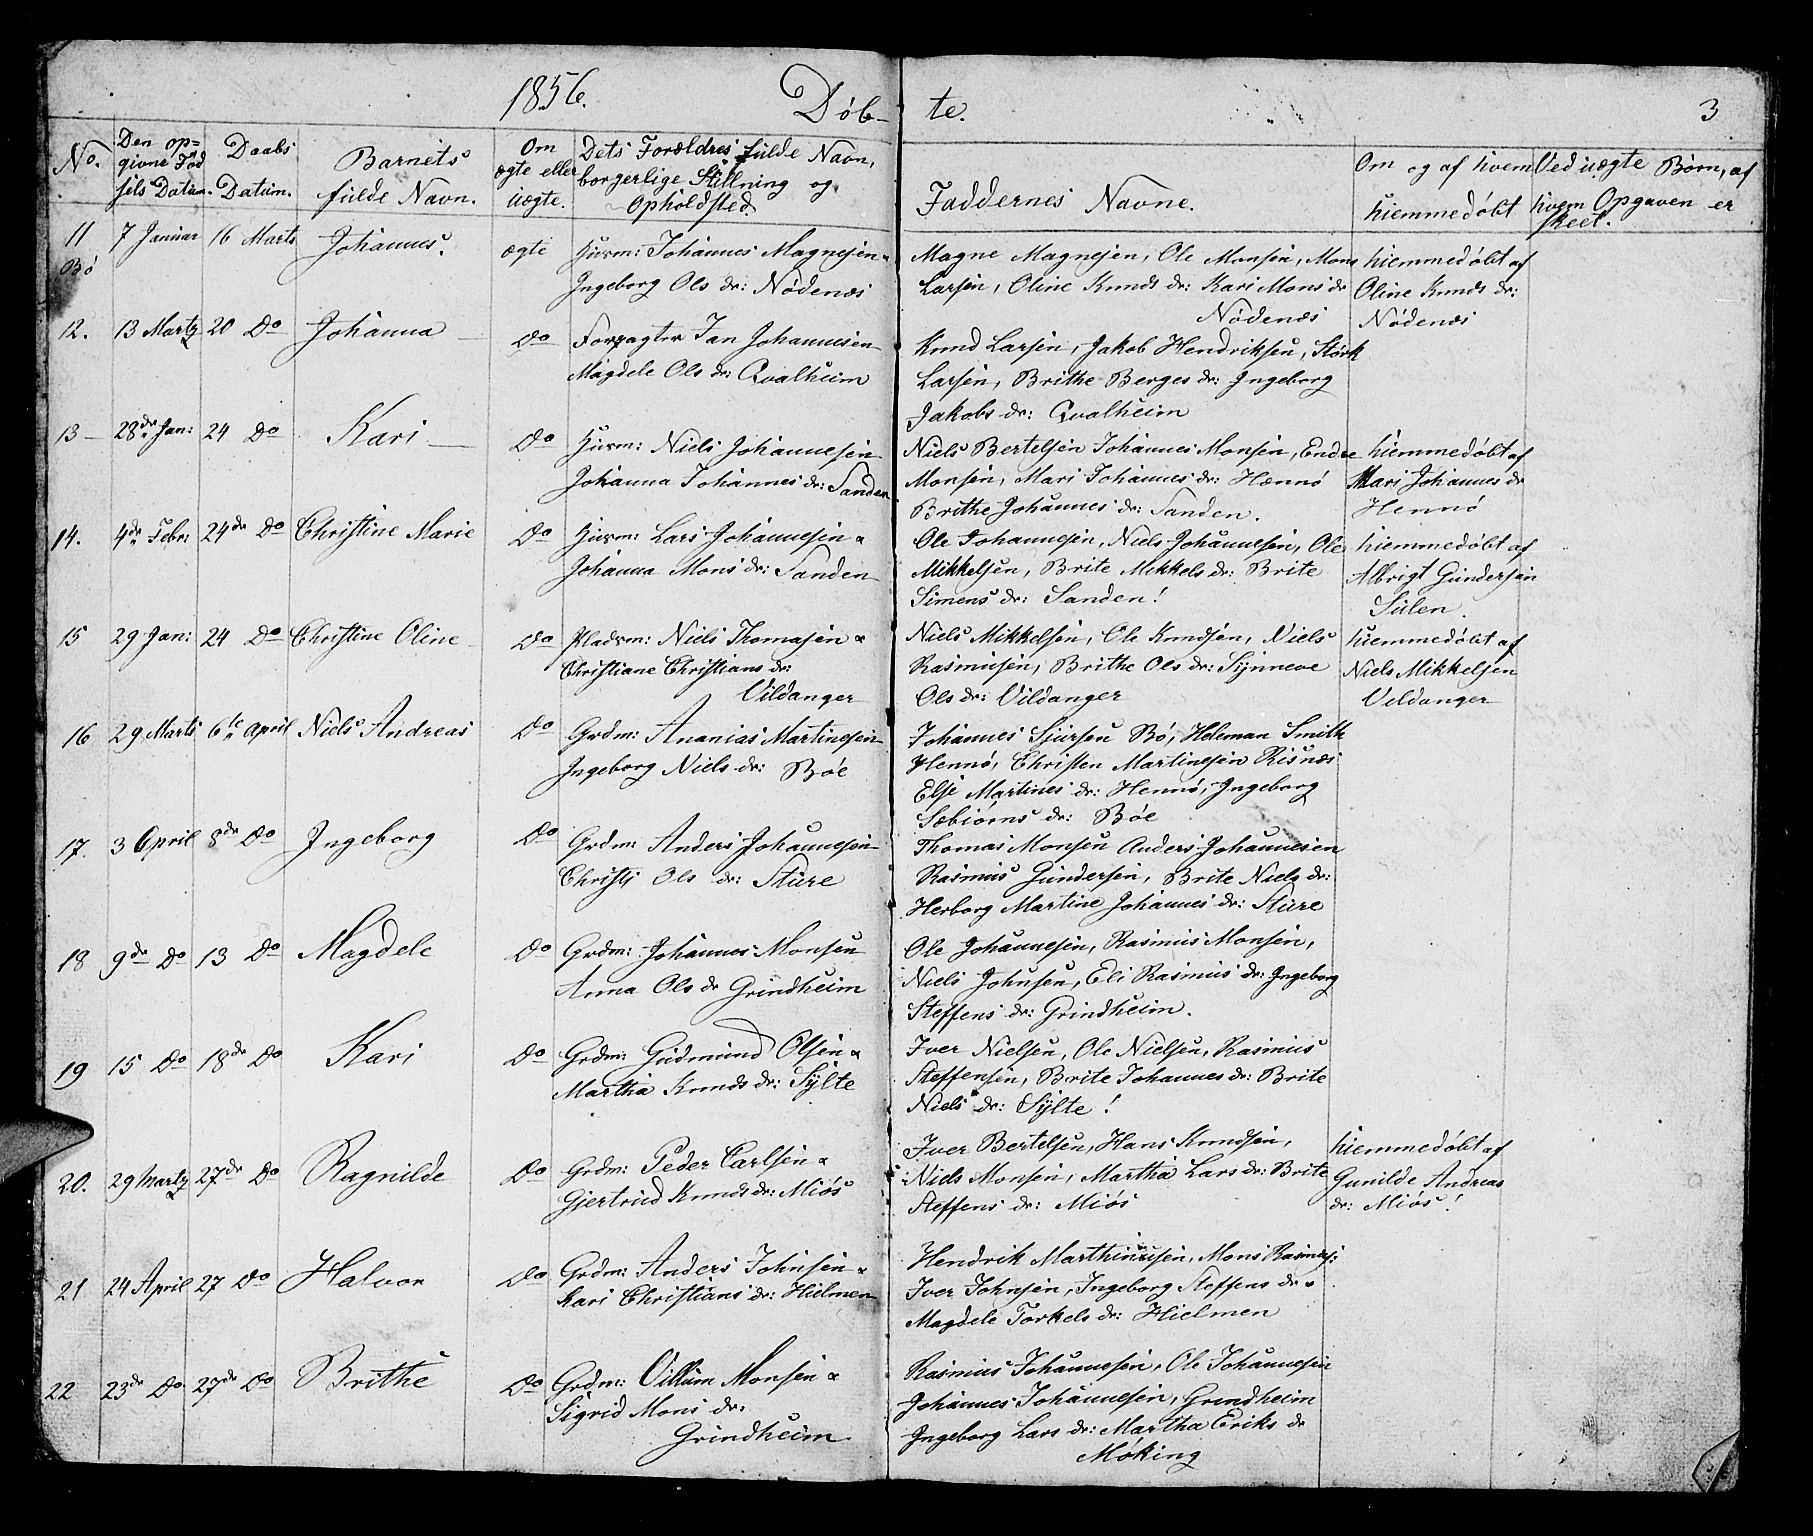 1856.
Døb-
te.
3
No.
Den op=
givne Fød
sels Datum.
Daabs
Datum.
Barnets
fulde Navn.
Om
ægte eller
uægte.
Dets Forældres fulde Navn,
borgerlige Stillning og
Opholdsted.
Faddernes Navne.
Om og af hvem
hiemmedøbt
Ved uægte Børn, af
hvem Opgaven er
skeet.
11
Bø
7 Januar
16 Marts
Johannes.
ægte
Huusm: Johannes Magnesen &
Ingeborg Ols dr: Nødenæs
Magne Magnesen, Ole Monsen, Mons
Larsen, Oline Knuds dr: Kari Mons dr
Nødenæs
hiemmedøbt af
Oline Knuds dr:
Nødenæs
12.
13 Marts
20 Do
Johanna
Do
Forpagter Jan Johannesen
Magdele Ols dr: Qvalheim
Knud Larsen, Jakob Hendriksen, Størk
Larsen, Brithe Berges dr: Ingeborg
Jakobs dr: Qvalheim
13
28de Jan:
24 Do
Kari
Do
Huusm: Niels Johannesen
Johanna Johannes dr: Sanden
Niels Bertelsen Johannes Monsen, Endre
Monsen, Mari Johannes dr: Hennø
Brithe Johannes dr: Sanden.
hiemmedøbt af
Mari Johannes dr
Hennø
14.
4de Febr:
24de Do
Christine Marie
Do
Huusm: Lars Johannesen &
Johanna Mons dr: Sanden
Ole Johannesen, Niels Johannesen, Ole
Mikkelsen, Brite Mikkels dr: Brite
Simens dr: Sanden!
hiemmedøbt af
Albrigt Gundersen
Sulen
15
29 Jan:
24 Do
Christine Oline
Do
Pladsm: Niels Thomasen &
Christiane Christians dr:
Vildanger
Niels Mikkelsen, Ole Knudsen, Niels
Rasmusen, Brithe Ols dr: Synneve
Ols dr: Vildanger
hiemmedøbt af
Niels Mikkelsen
Vildanger
16
29 Marts
6te April
Niels Andreas
Do
Grdm: Ananias Martinesen
Ingeborg Niels dr: Bøe
Johannes Sjursen Bø, Heleman Smith
Hennø, Christen Martinesen Risnæs
Else Martines dr: Hennø, Ingeborg
Sæbiørns dr: Bøe
17.
3 April
8de Do
Ingeborg
Do
Grdm: Anders Johannesen
Christj Ols dr: Sture
Thomas Monsen Anders Johannesen
Rasmus Gundersen, Brite Niels dr:
Herborg Martine Johannes dr: Sture
18
9de Do
13 Do
Magdele
Do
Grdm: Johannes Monsen
Anna Ols dr Grindheim
Ole Johannesen, Rasmus Monsen,
Niels Johnsen, Eli Rasmus dr: Ingeborg
Steffens dr: Grindheim.
19
15 Do
18de Do
Kari
Do
Grdm: Gudmund Olsen &
Martha Knuds dr: Sylte
Iver Nielsen, Ole Nielsen, Rasmus
Steffensen, Brite Johannes dr: Brite
Niels dr: Sylte!
20.
29 Marts
27de Do
Ragnilde
Do
Grdm: Peder Carlsen &
Gjertrud Knuds dr: Miøs
Iver Bertelsen, Hans Knudsen,
Niels Monsen, Martha Lars dr: Brite
Steffens dr: Miøs
hiemmedøbt af
Gunilde Andreas
dr: Miøs!
21
24 April
27 Do
Halvor
Do
Grdm: Anders Johnsen &
Kari Christians dr: Hielmen
Hendrik Marthinusen, Mons Rasmus:
Iver Johnsen, Ingeborg Steffens dr &
Magdele Torkels dr: Hielmen
22
23de Do
27de Do
Brithe
Do
Grdm: Villum Monsen &
Sigrid Mons dr:
Grindheim
Rasmus Johannesen, Ole Johannesen
Johannes Johannesen, Grindheim
Ingeborg Lars dr: Martha Eriks dr
Møking